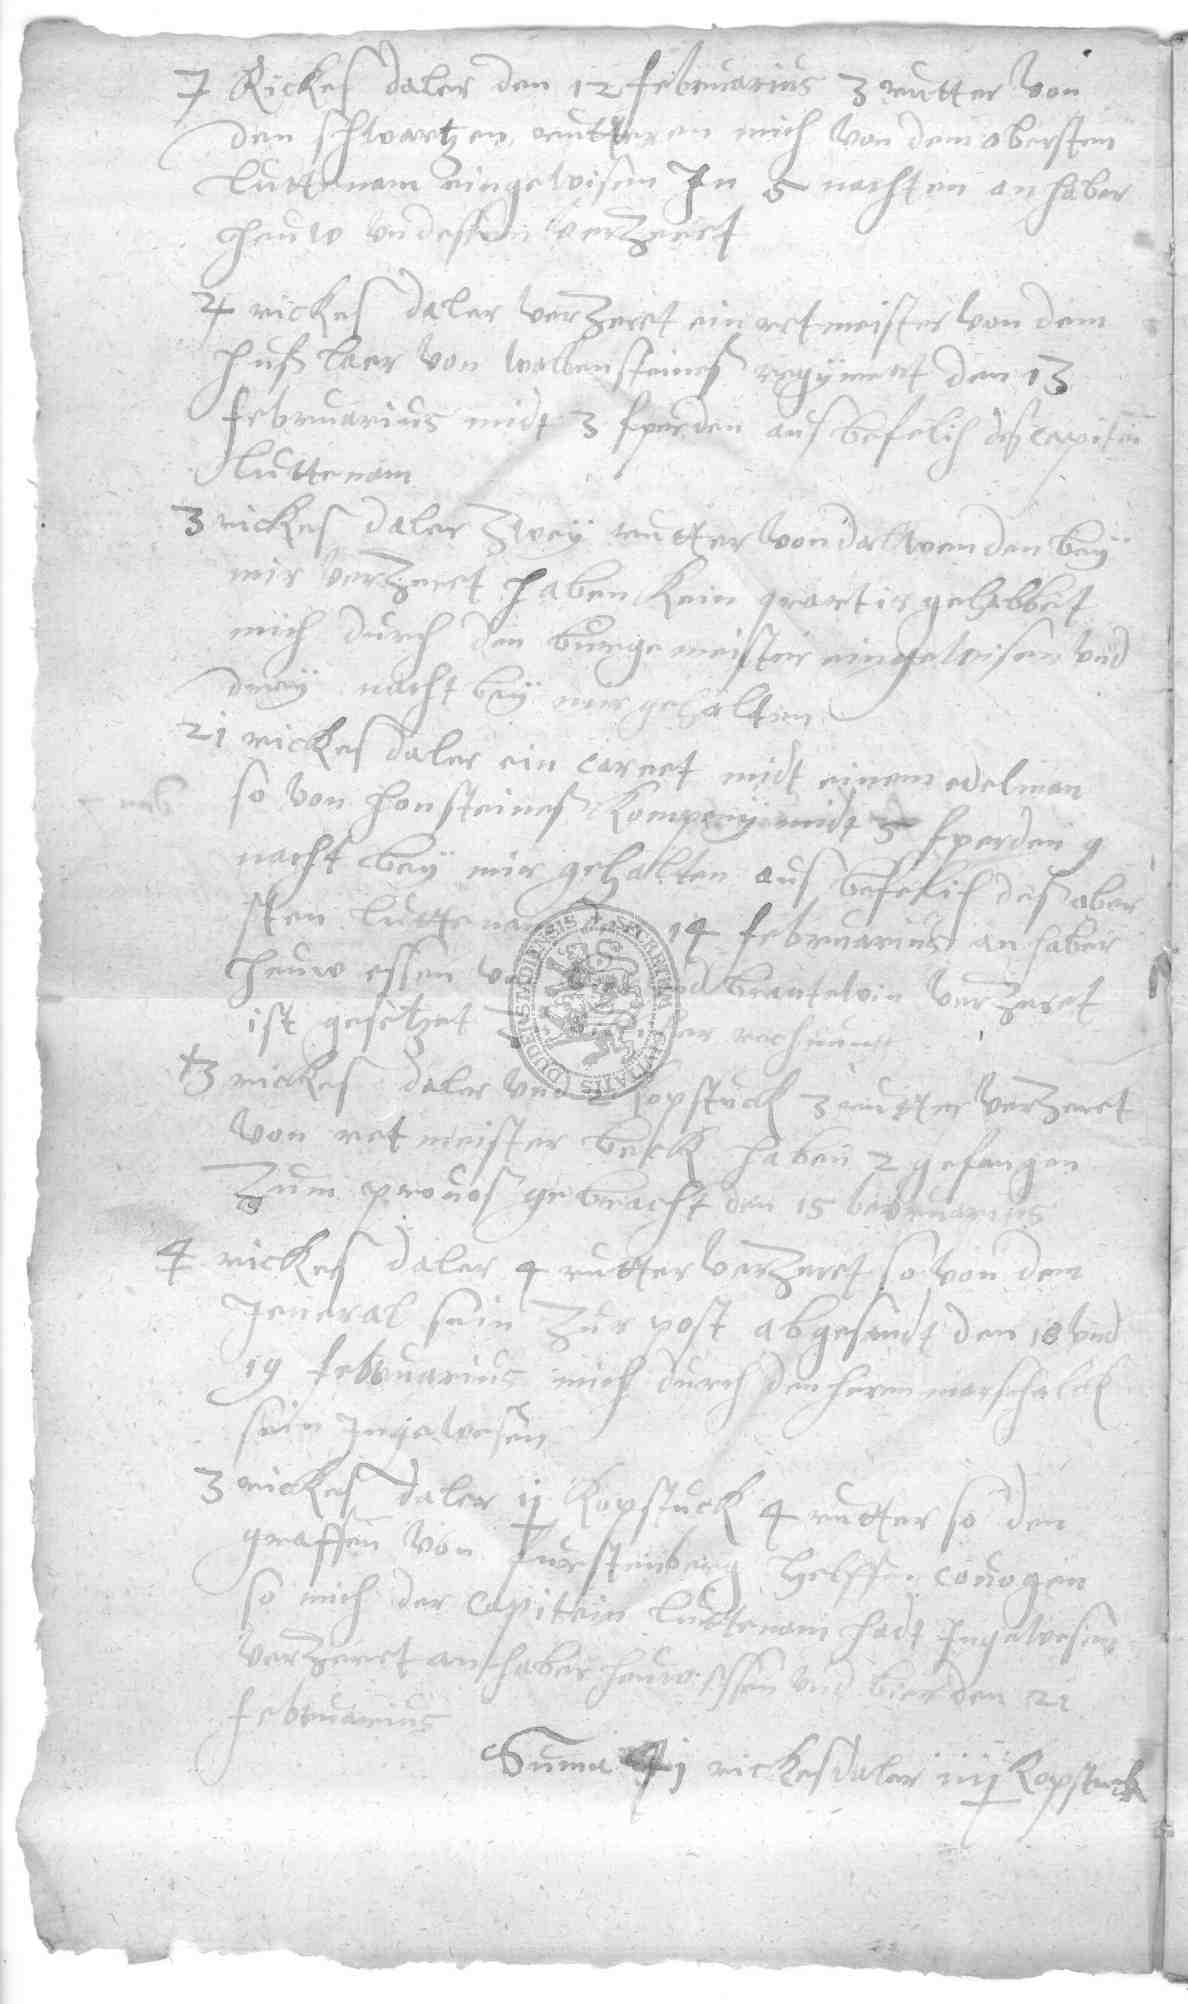 7 Rickes daler den 12 februarius 3 rutter von
den schwartzen rutteren mich von dem obersten
luttenam eingewisen In 5 nachten an haber
heuw und essen verzeert
4 rickes daler verzeret ein retmeister von dem
huß laer von wallensteines regÿment den 13
februarius midt 3 fperden aus befelih deß capitein
luttenam
3 rickes daler zweÿ rutter von dalwenden beÿ
mir verzeret haben kein quartir gehabbet
mich durch den burgemeister eingewisen und
dreÿ nacht beÿ mir gehalten
21 rickes daler ein cornet midt einem edelman
so von honsteines kompenÿ midt 5 fperden 9
nacht beÿ mir gehalten aus befelih deß ober
sten luttenam 14 februarius an haber
heuw essen und brantewin verzeret
ist gesetzet rechnung
3 rickes daler und 2 kopstuck 3 rutter verzeret
von retmeister beck haben 2 gefangen
zum provos gebracht den 15 bebruarius
4 rickes daler 4 rutter verzeret so von dem
Jeneral sein zur post abgesandt den 18 und
19 februarius mich durch den heren marschalck
sein Ingewesen
3 rickes daler ij kopstuck 4 rutter so den
graffen von furstenberg helffen
so mich der capitein luttenam hadt Ingewesen
verzeret an haber heuw essen und bier den 21
februarius
Suma rickesdaler iiij kopstuck
SECRETUM CIVITATIS DUDERSTADIENSIS